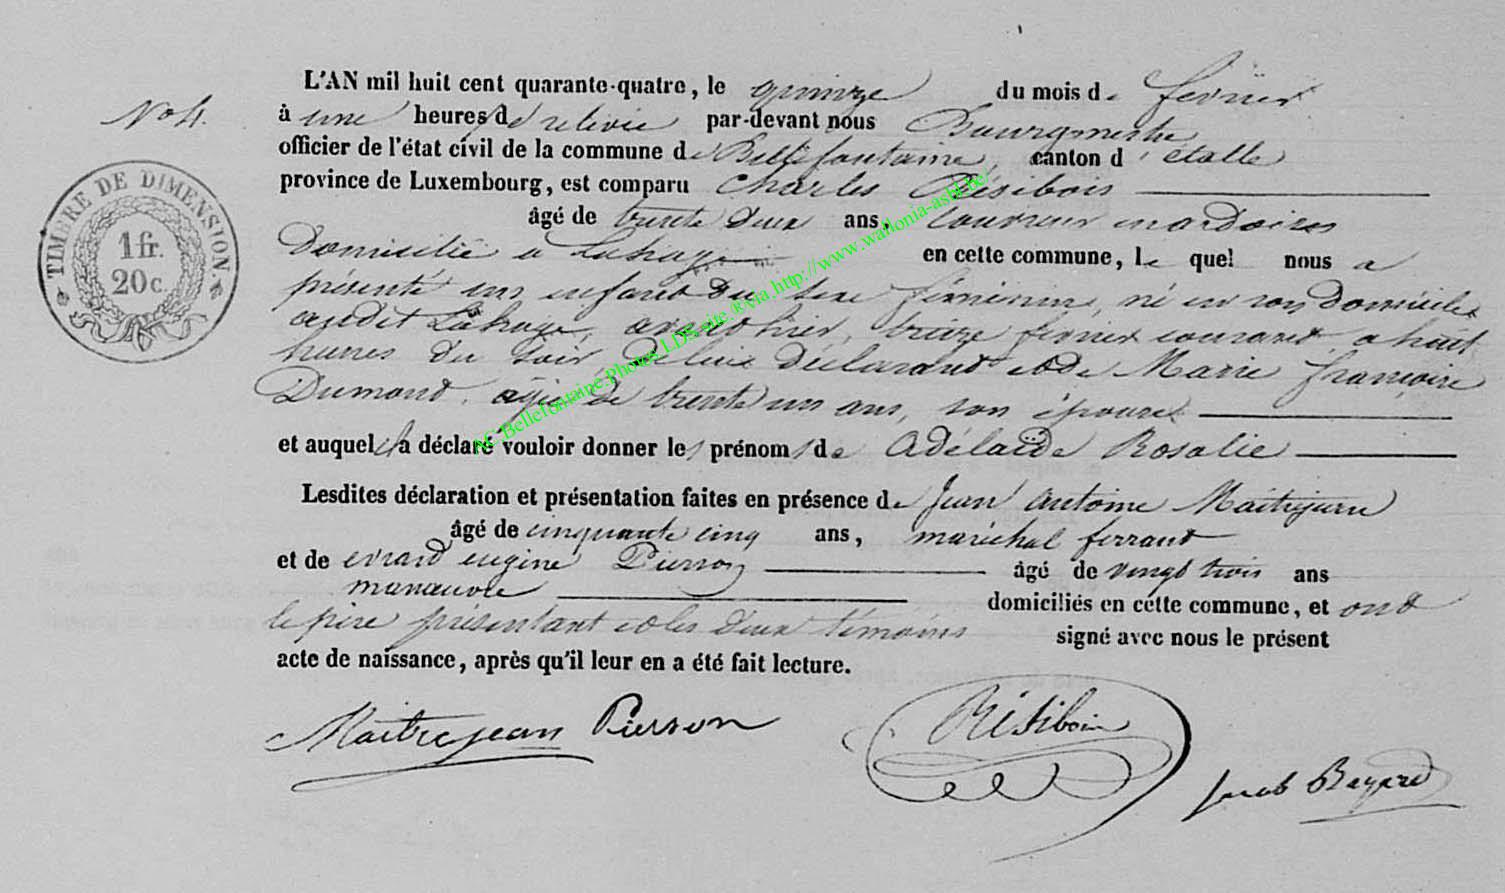 No 4.
TIMBRE DE DIMENSION.
1 fr.
20 c.
L'AN mil huit cent quarante-quatre, le quinze du mois de fevrier
à une heures de relevée par-devant nous Bourgmestre
officier de l'état civil de la commune de Bellefontaine, canton d'étalle
province de Luxembourg, est comparu Charles Résibois
âgé de trente deux ans, couvreur en ardoises
domicilié a Lahage en cette commune, le quel nous a
présenté un enfant du sexe féminin, né en son domicile
audit Lahage, avant hier, treize fevrier courant a huit
heures du soir, de lui declarant et de Marie françoise
Dumont, agée de trente un ans, son épouse
et auquel il a déclaré vouloir donner les prénoms de Adélaïde Rosalie
Lesdites déclaration et présentation faites en présence de Jean Antoine Maitrejean
âgé de cinquante cinq ans, maréchal ferrant
et de evrard eugène Pierson âgé de vingt trois ans
manœuvre domiciliés en cette commune, et ont
le père présentant et les deux témoins signé avec nous le présent
acte de naissance, après qu'il leur en a été fait lecture.
Maitrejean Pierson Résibois
Jacob Bayard
AC Bellefontaine Photos LDS site @via http://www.wallonia-asbl.be/